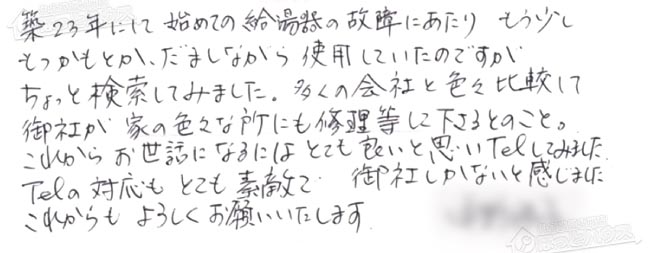 築23年にして 始めての給湯器の故障にあたり もう少し
もつかもとか、だましながら 使用していたのですが
ちょっと検索してみました。多くの会社と色々比較して
御社が 家の色々な所にも修理等して下さるとのこと。
これから お世話になるには とても良いと思い Telしてみました
Telの対応も とても 素敵で 御社しかないと感じました
これからも よろしくお願いいたします